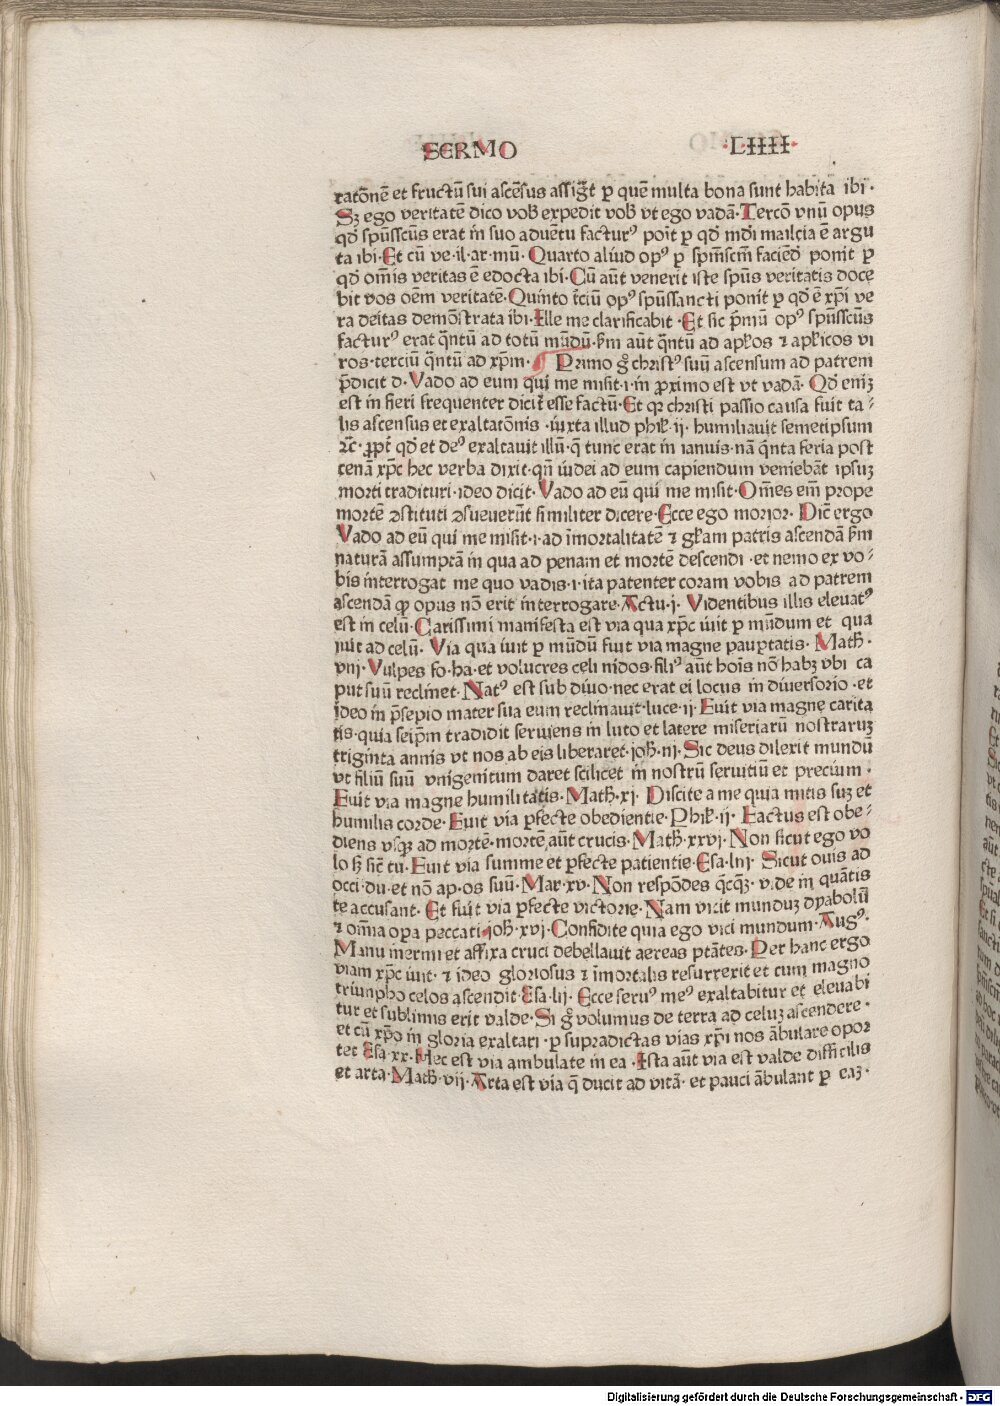 SERMO ·LIIII·
ratōnē et fructū sui ascēsus assigt̄ ꝑ quē multa bona sunt habita ibi·
Sꝫ ego veritatē dico vob̄ expedit vob̄ vt ego vadā·Tercō vnū opus
qd̄ spūsscūs erat in suo aduētu facturꝰ poīt ꝑ qd̄ mdi malicia ē argu
ta ibi·Et cū ve·il·ar·mū·Quarto aliud opꝰ ꝑ spm̄scm̄ faciēd̄ ponit ꝑ
qd̄ om̄is veritas ē edocta ibi·Cū aūt venerit iste spūs veritatis doce
bit vos oēm veritatē·Quinto t̄ciū opꝰ spūssancti ponit ꝑ qd̄ ē xp̄i ve
ra deitas demōstrata ibi·Ille me clarificabit·Et sic p̄mū opꝰ spūsscūs
facturꝰ erat q̄ntū ad totū mūdū·ẜm aūt q̄ntū ad apl̄os ⁊ apl̄icos vi
ros·terciū q̄ntū ad xp̄m· Primo g̊ christꝰ suū ascensum ad patrem
p̄dicit d·Vado ad eum qui me misit·i·in ꝓximo est vt vadā·Qd̄ eniꝫ
est in fieri frequenter dicit̄ esse factū·Et qꝛ christi passio causa fuit ta⸗
lis ascensus et exaltatōnis·iuxta illud phil̄·ij·humiliauit semetipsum
⁊c̄·ꝓpt̄ qd̄ et deꝰ exaltauit illū·q̄ tunc erat in ianuis·nā q̄nta feria post
cenā xp̄c hec verba dixit·qn̄ iudei ad eum capiendum veniebāt ipsuꝫ
morti tradituri·ideo dicit·Vado ad eū qui me misit·Om̄es em̄ prope
mortē ꝯstituti ꝯsueuerūt similiter dicere·Ecce ego morior·Dic̄ ergo
Vado ad eū qui me misit·i·ad īmortalitatē ⁊ gl̄iam patris ascendā ẜm
naturā assumptā in qua ad penam et mortē descendi·et nemo ex vo⸗
bis interrogat me quo vadis·i·ita patenter coram vobis ad patrem
ascendā ꝙ opus nō erit interrogare·Actu·j·Videntibus illis eleuatꝰ
est in celū·Carissimi manifesta est via qua xp̄c iuit ꝑ mūdum et qua
iuit ad celū·Via qua iuit ꝑ mūdū fuit via magne pauꝑtatis·Math̄·
viij·Vulpes fo·ha·et volucres celi nidos·filiꝰ aūt hoīs nō habꝫ vbi ca
put suū reclinet·Natꝰ est sub diuo·nec erat ei locus in diuersorio·et
ideo in p̄sepio mater sua eum reclinauit·luce·ij·Fuit via magne carita
tis·quia seip̄m tradidit seruiens in luto et latere miseriarū nostraruꝫ
triginta annis vt nos ab eis liberaret·joh̄·iij·Sic deus dilexit mundū
vt filiū suū vnigenitum daret scilicet in nostrū seruitiū et precium·
Fuit via magne humilitatis·Math̄·xj·Discite a me quia mitis suꝫ et
humilis corde·Fuit via ꝑfecte obedientie·Phil̄·ij·Factus est obe⸗
diens vsqꝫ ad mortē·mortē aūt crucis·Math̄·xxvj·Non sicut ego vo
lo sꝫ sic̄ tu·Fuit via summe et ꝑfecte patientie·Esa·liij·Sicut ouis ad
occi·du·et nō ap·os suū·Mar·xv·Non respōdes q̄cq̄ꝫ·v·de in quātis
te accusant·Et fuit via ꝑfecte victorie·Nam vicit munduꝫ dyabolū
⁊ om̄ia oꝑa peccati·joh̄·xvj·Confidite quia ego vici mundum·Augꝰ·
Manu inermi et affixa cruci debellauit aereas ptātes·Per hanc ergo
viam xp̄c iuit·⁊ ideo gloriosus ⁊ īmortalis resurrexit et cum magno
triumpho celos ascendit·Esa·lij·Ecce seruꝰ meꝰ exaltabitur et eleuabi
tur et sublimis erit valde·Si g̊ volumus de terra ad celuꝫ ascendere·
et cū xp̄o in gloria exaltari·ꝑ supradictas vias xp̄i nos ābulare opor
tet Esa·xx·Hec est via ambulate in ea·Ista aūt via est valde difficilis
et arta·Math̄·vij·Arta est via q̄ ducit ad vitā·et pauci ābulant ꝑ eaꝫ·
Digitalisierung gefördert durch die Deutsche Forschungsgemeinschaft - DFG